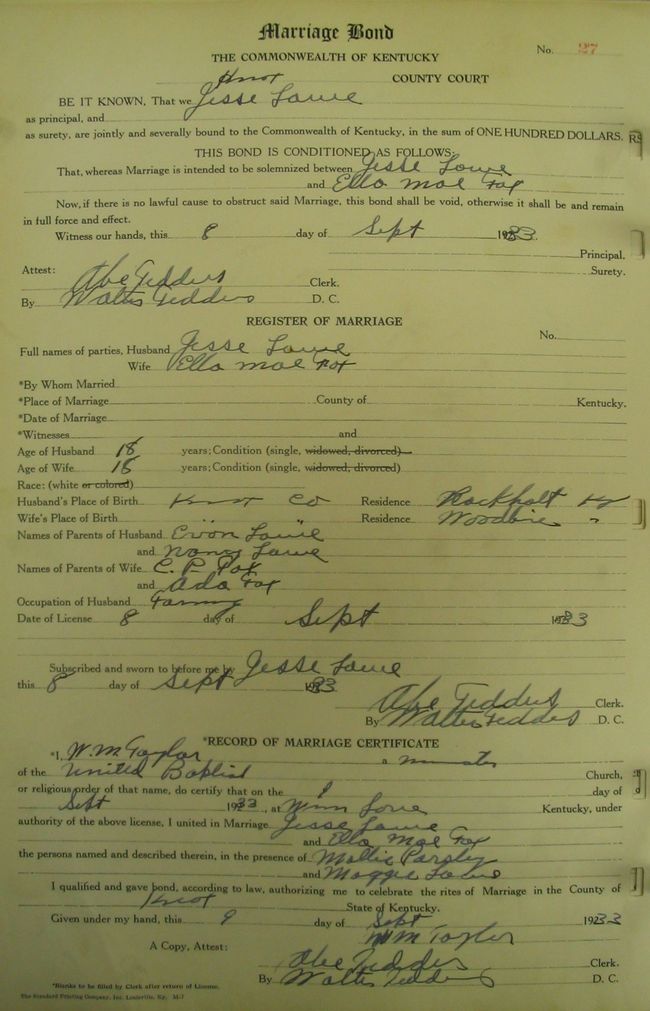 Marriage Bond
No. 27
THE COMMONWEALTH OF KENTUCKY
Knox COUNTY COURT
BE IT KNOWN, That we Jesse Lawe
as principal, and
as surety, are jointly and severally bound to the Commonwealth of Kentucky, in the sum of ONE HUNDRED DOLLARS.
THIS BOND IS CONDITIONED AS FOLLOWS:
That, whereas Marriage is intended to be solemnized between Jesse Lawe
and Ella Mae Fox
Now, if there is no lawful cause to obstruct said Marriage, this bond shall be void, otherwise it shall be and remain
in full force and effect.
Witness our hands, this 8 day of Sept 1933.
Principal.
Surety.
Attest:
Abe Geddes Clerk.
By Walter Geddes D. C.
REGISTER OF MARRIAGE
No.
Full names of parties, Husband Jesse Lawe
Wife Ella Mae Fox
*By Whom Married
*Place of Marriage County of Kentucky.
*Date of Marriage
*Witnesses and
Age of Husband 18 years; Condition (single, widowed, divorced)
Age of Wife 18 years; Condition (single, widowed, divorced)
Race: (white or colored)
Husband's Place of Birth Knox Co Residence Rockholt Ky
Wife's Place of Birth Residence Woodbine "
Names of Parents of Husband Lawe
and Nancy Lawe
Names of Parents of Wife C. P. Fox
and Ada Fox
Occupation of Husband Farming
Date of License 8 day of Sept 1933
Subscribed and sworn to before me by Jesse Lawe
this 8 day of Sept 1933.
Abe Geddes Clerk.
By Walter Geddes D. C.
*RECORD OF MARRIAGE CERTIFICATE
*I, W. M. Taylor a minister
of the United Baptist Church,
or religious order of that name, do certify that on the day of
Sept 1933, at Kentucky, under
authority of the above license, I united in Marriage Jesse Lawe
and Ella Mae Fox
the persons named and described therein, in the presence of Mollie Parsley
and Maggie Lawe
I qualified and gave bond, according to law, authorizing me to celebrate the rites of Marriage in the County of
Knox State of Kentucky.
Given under my hand, this 9 day of Sept 1933
W M Taylor
A Copy, Attest:
Abe Geddes Clerk.
By Walter Geddes D. C.
*Blanks to be filled by Clerk after return of License.
The Standard Printing Company, Inc. Louisville, Ky. M-7